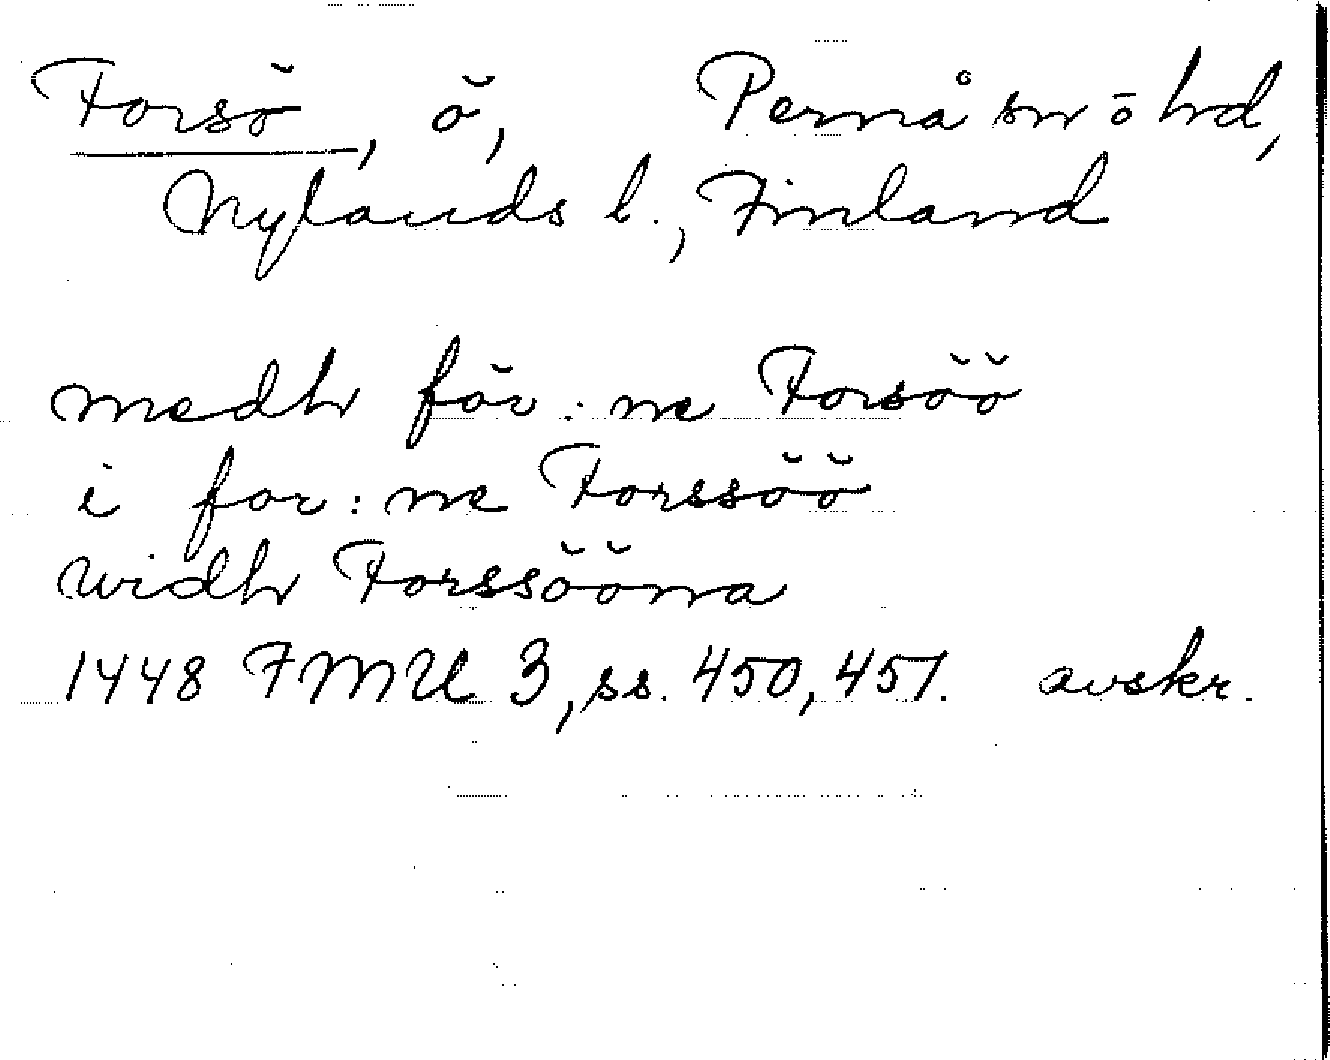 Forsö, ö, Pernå sn o hd,
Nylands l., Finland
medh för:ne Forsöö
i for:ne Forssöö
widh Forssööna
1448 FMU 3, ss. 450, 451. avskr.